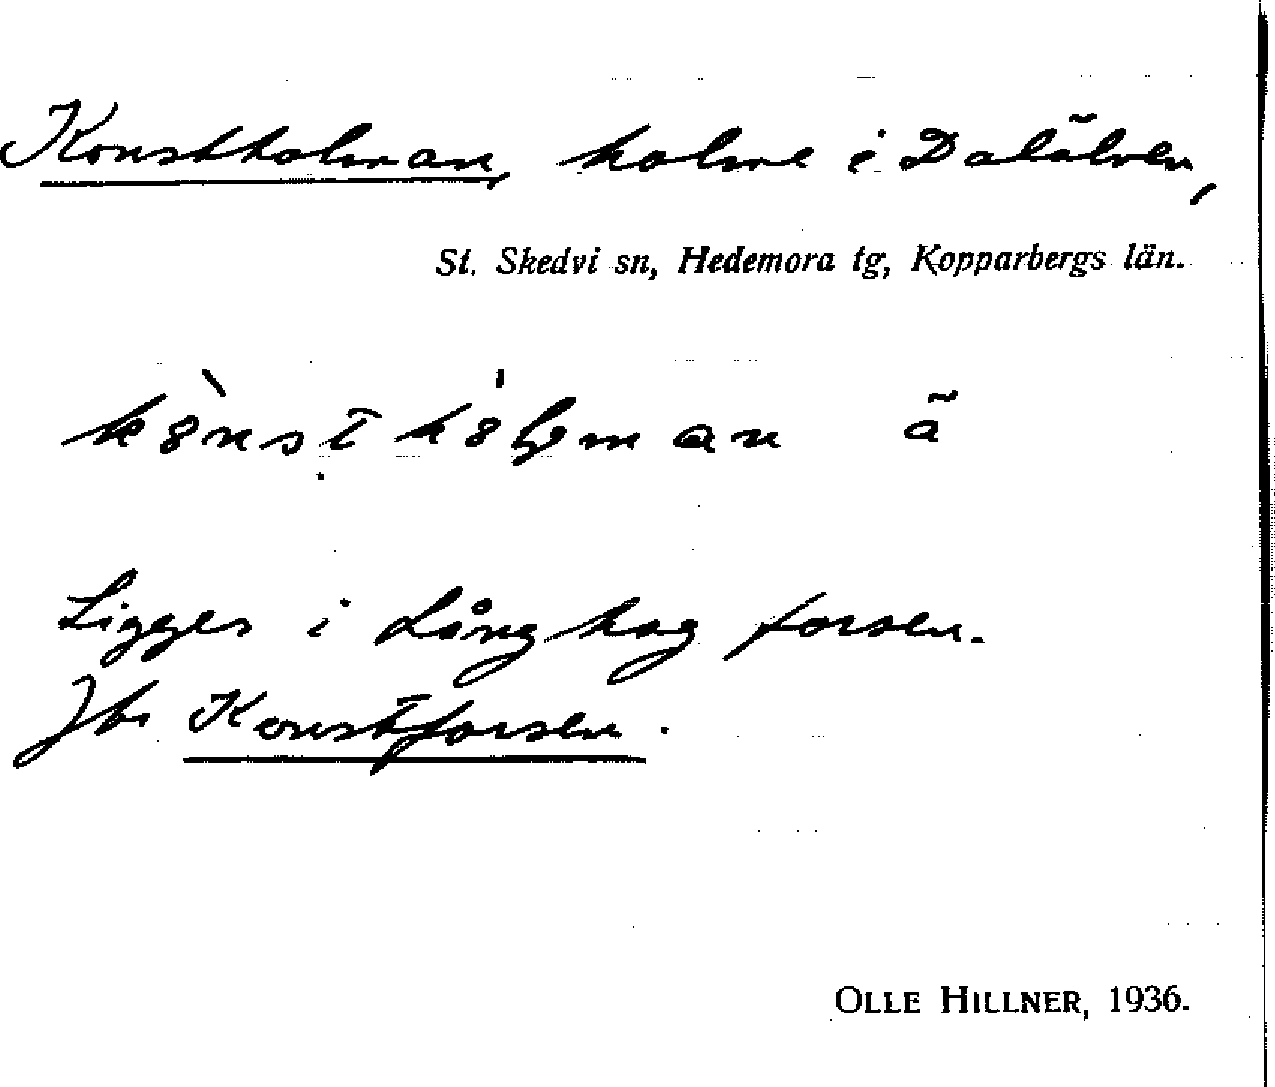 Konstholman, holme i Dalälven,
St. Skedvi sn, Hedemora tg, Kopparbergs län.
ã
Ligger i Långhag forsen.
Jfr Konstforsen.
OLLE HILLNER, 1936.